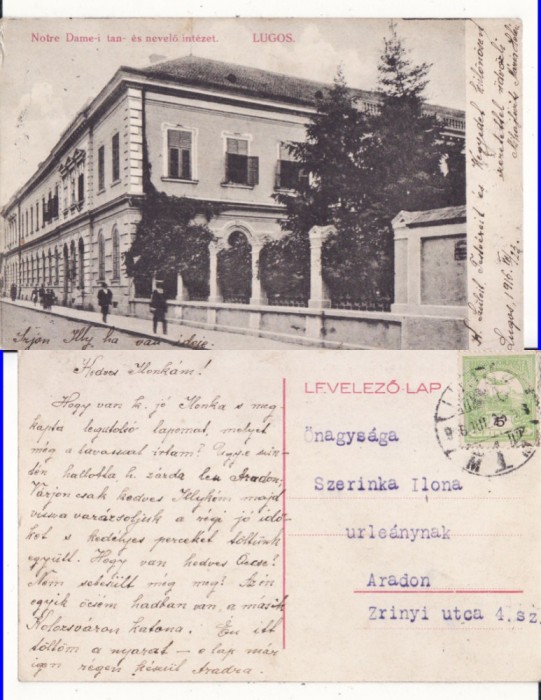 Notre Dame-i tan- és nevelő intézet. LUGOS.
Kedves Szüleit Testvéreit és Kegyedet különösen
szeretettel üdvözli
Lugos, 1916.
Irjon Illy ha van ideje.
Kedves Ilonkám!
Hogy van k. jó Ilonka s meg-
kapta legutolsó lapomat, melyet
még a tavasszal irtam? Ugye szin-
tén hallotta h. zárda lesz Aradon,
Várjon csak kedves Illykém majd
vissza varázsoljuk a régi jó idő-
ket s kedélyes perceket töltünk
együtt. Hogy van kedves Öcsse?
Nem sebesült még meg? Az én
egyik öcsém hadban van, a másik
Kolozsváron katona. Én itt
töltöm a nyarat – e lap már
igen régen készül Aradra.
LEVELEZŐ-LAP
Önagysága
Szerinka Ilona
urleánynak
Aradon
Zrinyi utca 4.sz